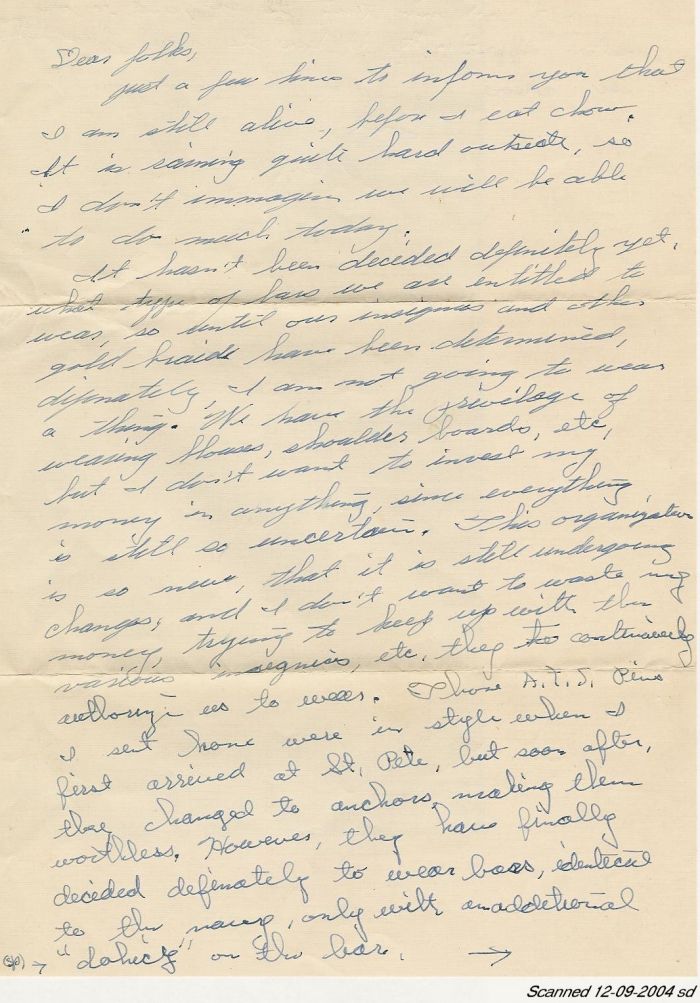 Dear folks,
just a few lines to inform you that
I am still alive, before I eat chow.
It is raining quite hard outside, so
I don't immagine we will be able
to do much today.
It hasn't been decided definitely yet,
what type of bars we are entitled to
wear, so until our insignias and other
gold braid have been determined,
difinately, I am not going to wear
a thing. We have the privilage of
wearing blouses, shoulder boards, etc,
but I don't want to invest my
money in anything, since everything
is still so uncertain. This organization
is so new, that it is still undergoing
changes, and I don't want to waste my
money, trying to keep up with the
various insignias, etc, they continuously
authorize us to wear. Those A.T.S. Pins
I sent home were in style when I
first arrived at St. Pete, but soon after,
they changed to anchors, making them
worthless. However, they have finally
decided definately to wear bars, identical
to the navy, only with an additional
(sp) → "dohicky" on the bar. →
Scanned 12-09-2004 sd